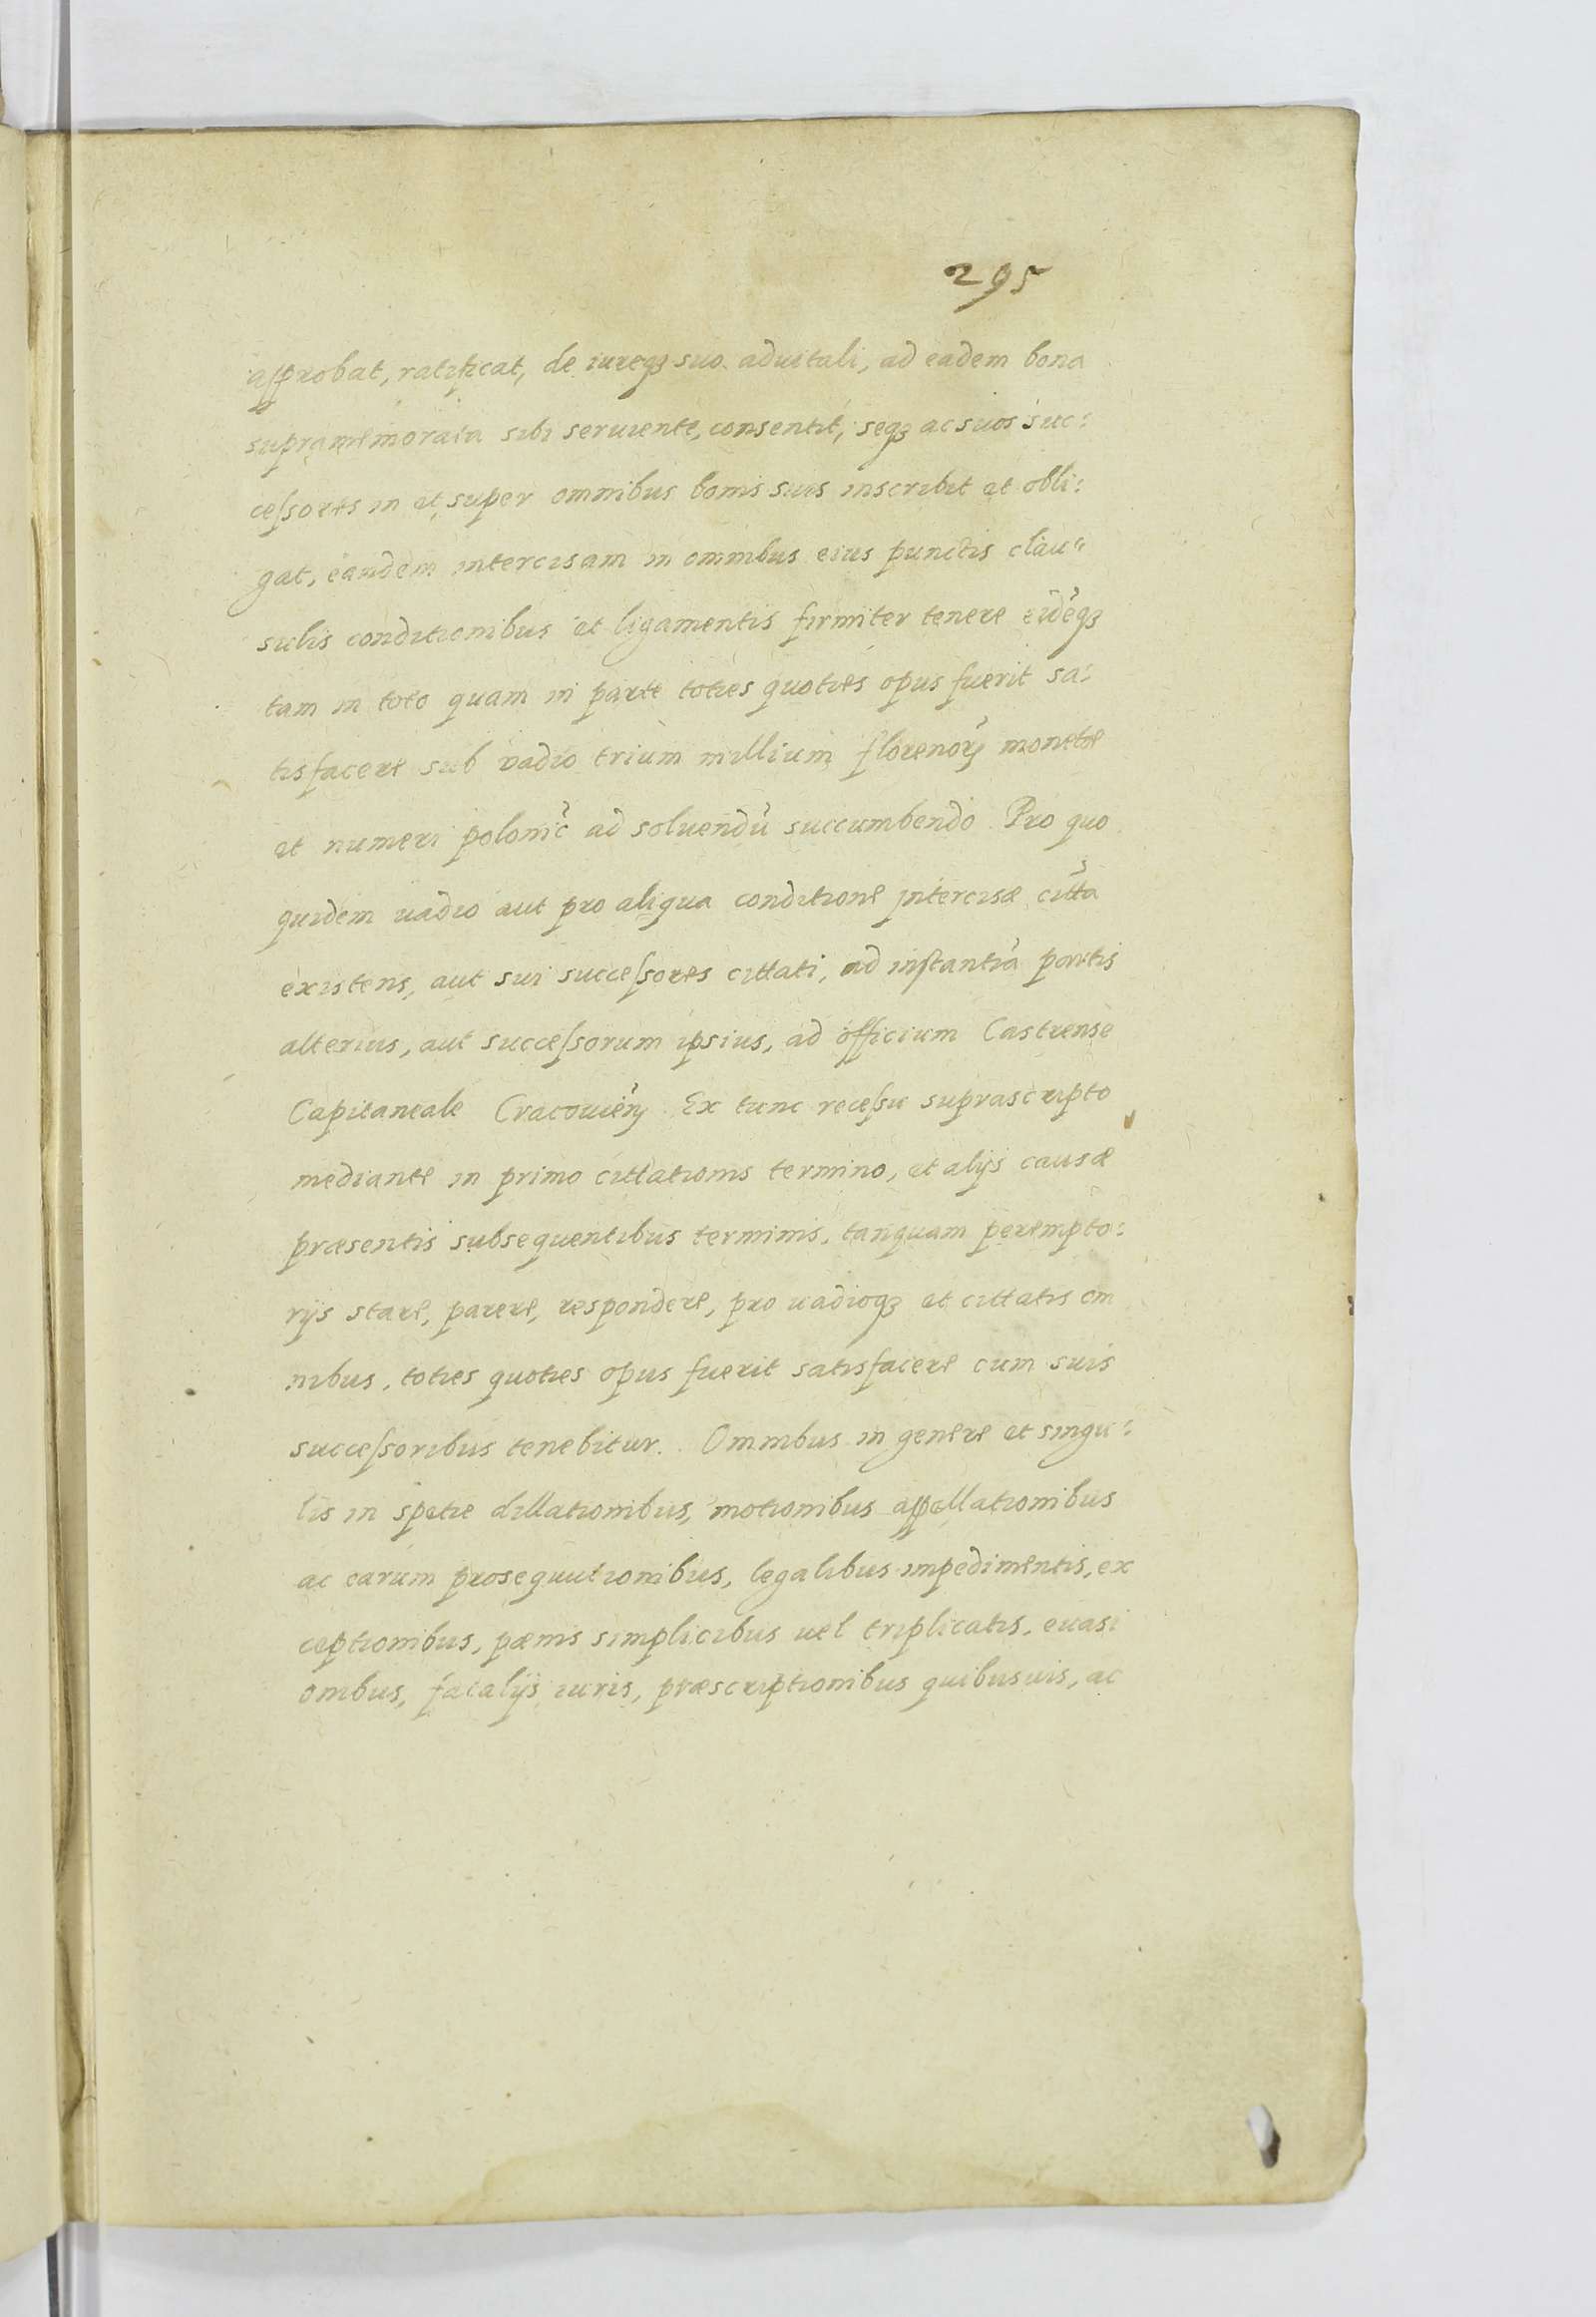 295
approbat, ratificat, de iureqʒ suo aduitali, ad eadem bona
supramemorata sibi seruiente, consentit, seqʒ ac suos suc:
ceſsores in et super omnibus bonis suis inscribit et obli:
gat, eandem intercisam in omnibus eius punctis clau:
sulis conditionibus et ligamentis firmiter tenere eidēqʒ
tam in toto quam in parte toties quoties opus fuerit sa:
tisfacere sub vadio trium millium florenoꝝ monetæ
et numeri polonic̃ ad soluendū succumbendo Pro quo
quidem uadio aut pro aliqua conditione intercisæ citta
existens, aut sui succeſsores cittati, ad inſtantiā partis
alterius, aut succeſsorum ipsius, ad officium Castrense
Capitaneale Cracouien̄ Ex tunc receſsu suprascripto
mediante in primo cittationis termino, et alijs causæ
præsentis subsequentibus terminis, tanquam perempto:
rijs stare, parere, respondere, pro uadioqʒ et cittatis om
nibus, toties quoties opus fuerit satisfacere cum suis
succeſsoribus tenebitur. Omnibus in genere et singu:
lis in spetie dillationibus, motionibus appellationibus
ac earum prosequutionibus, legalibus impedimentis, ex
ceptionibus, pœnis simplicibus uel triplicatis, euasi
onibus, fatalijs iuris, præscriptionibus quibusuis, ac